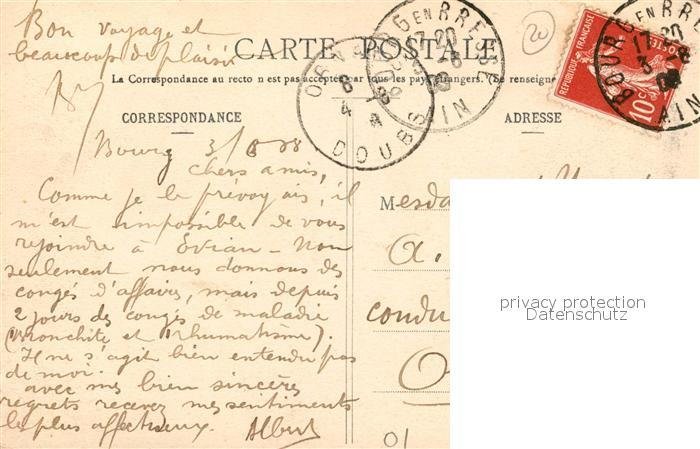 Bon voyage et
beaucoup de plaisir
CARTE POSTALE
La Correspondance au recto n'est pas acceptée par tous les pays étrangers. (Se renseigne
CORRESPONDANCE
ADRESSE
BOURG EN BRESSE
17-20
3-8
AIN
DOUBS
RÉPUBLIQUE FRANÇAISE
POSTES
10c
20
Bourg 3/8 08
chers amis,
Comme je le prévoyais, il
m'est impossible de vous
rejoindre à Evian - Non
seulement nous donnons des
congés d'affaires, mais depuis
2 jours des congés de maladie
(bronchite et rhumatisme).
Il ne s'agit bien entendu pas
de moi.
avec mes bien sincères
regrets recevez mes sentiments
les plus affectueux. Albert
Mesda
a.
condu
O
01
privacy protection
Datenschutz